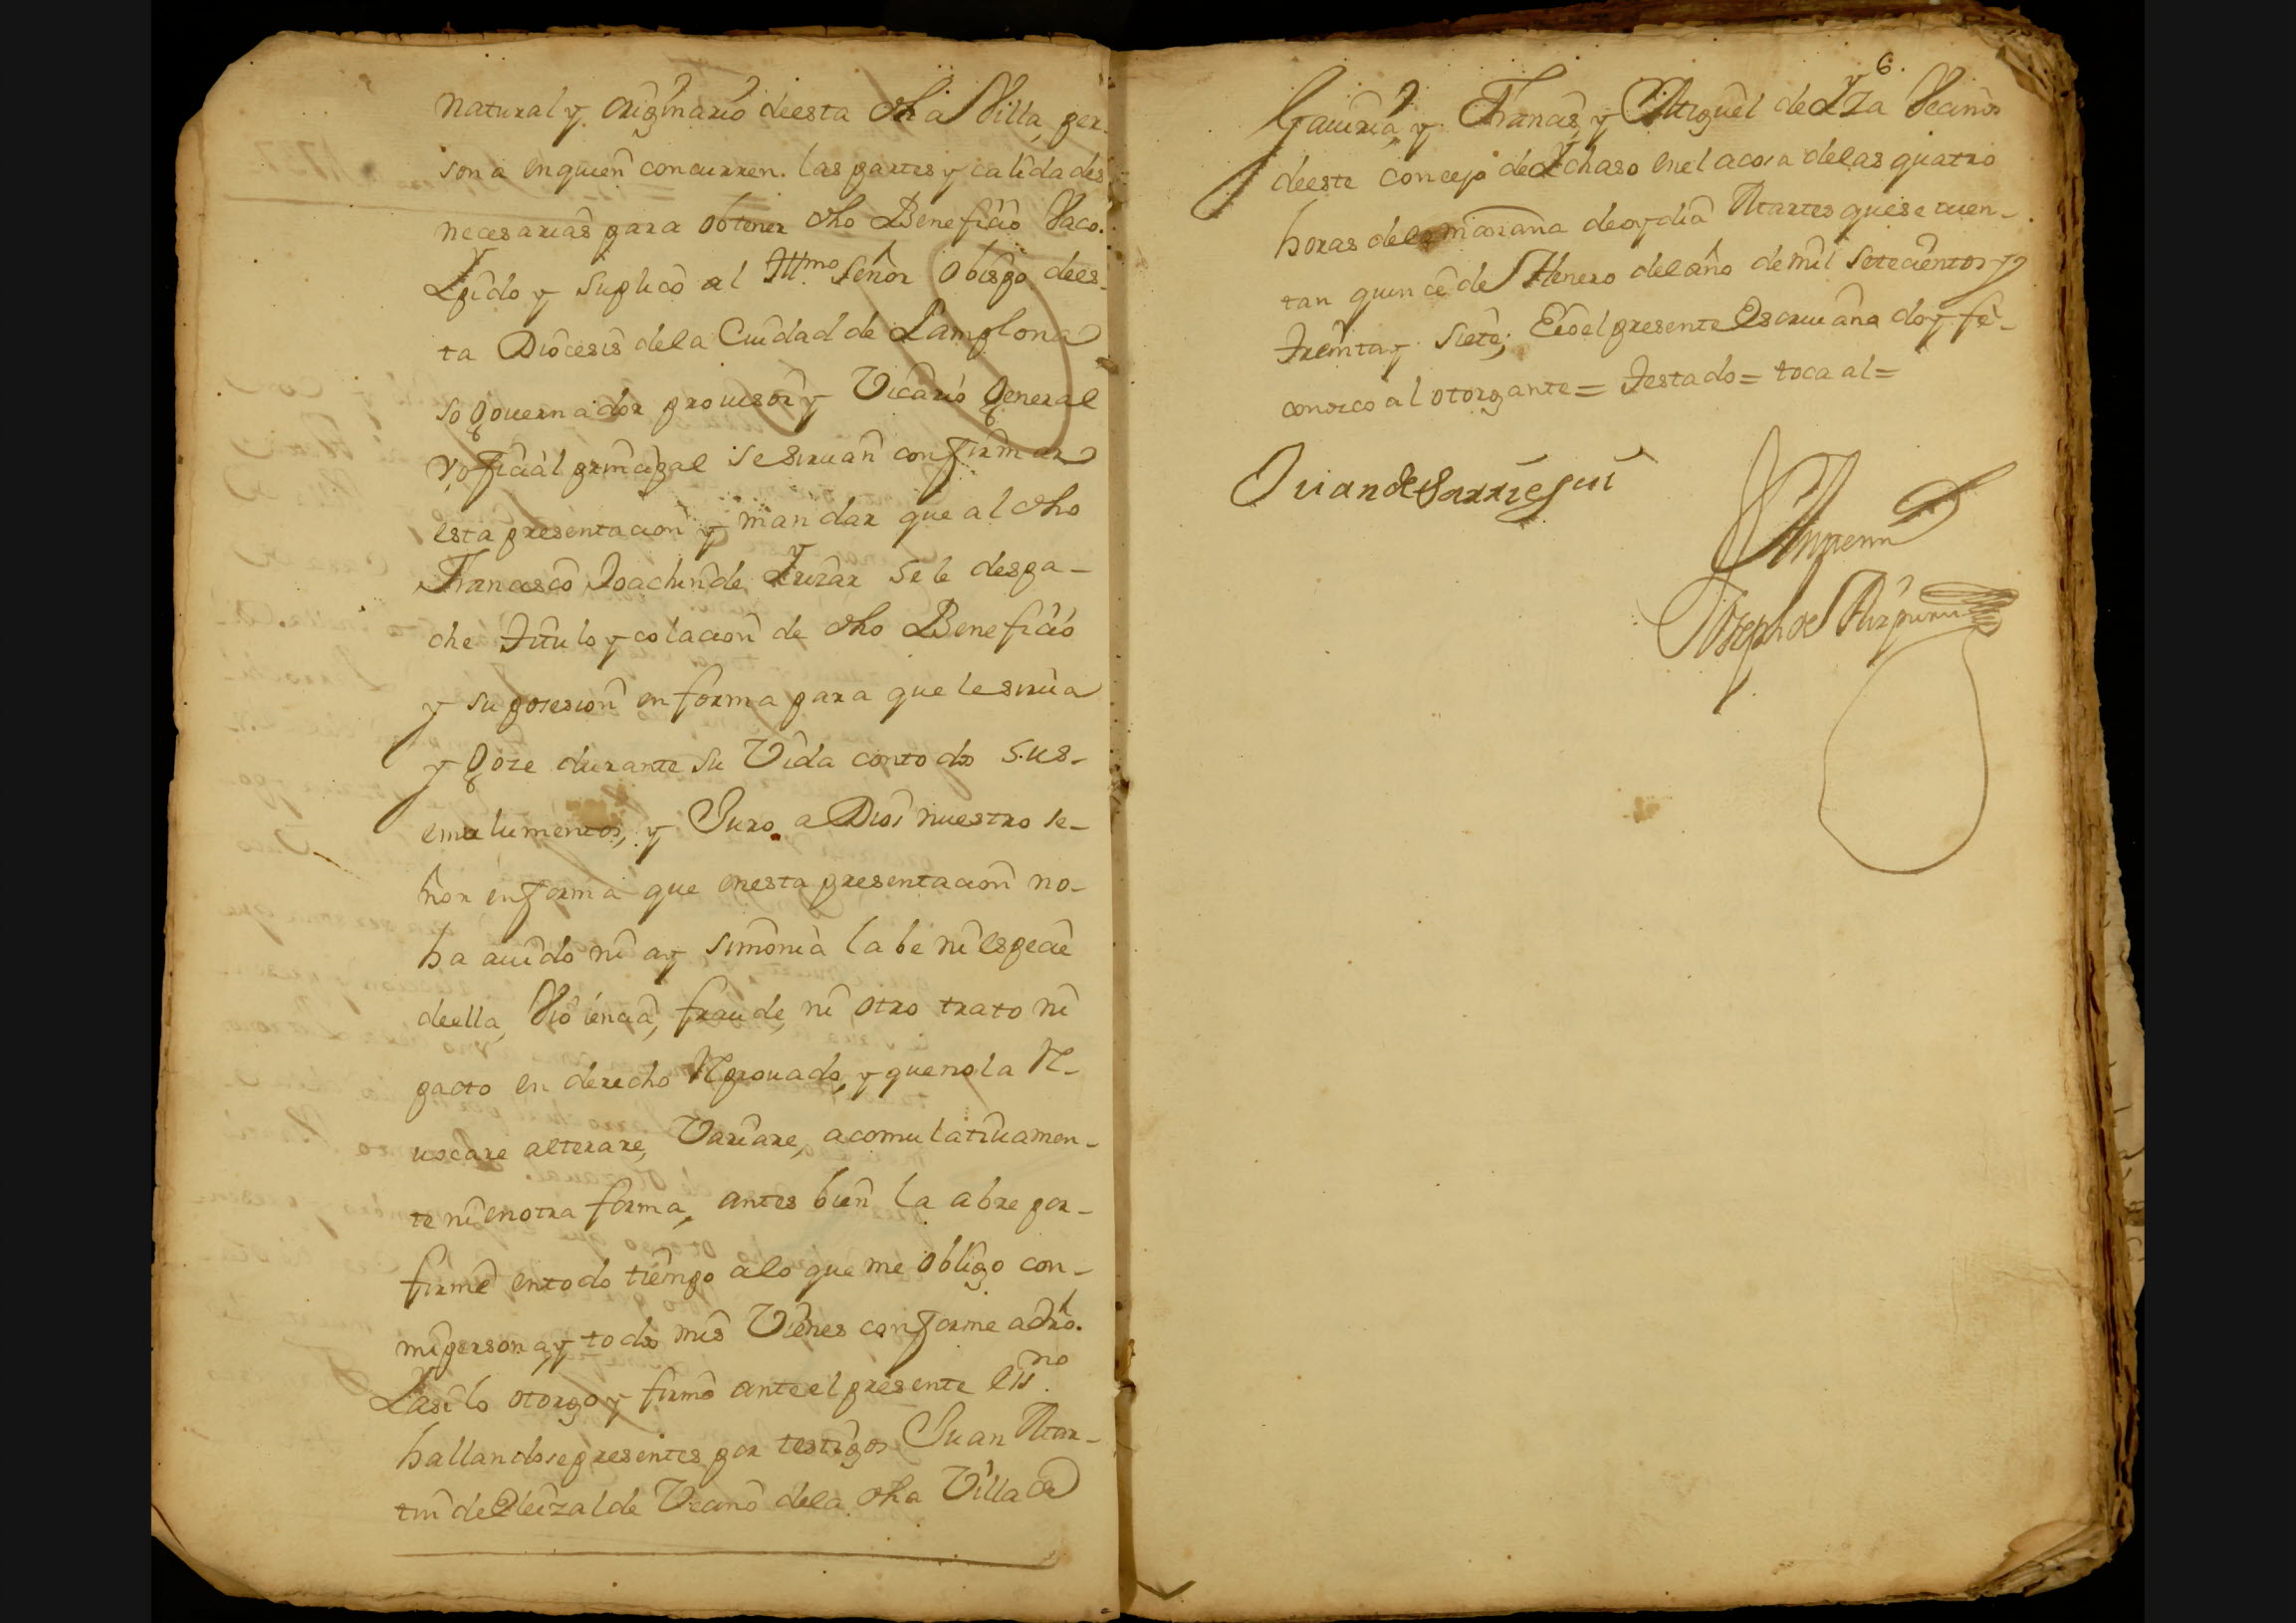 Natural y originario de esta dha Villa, per-
sona en quien concurren las partes y calidades
necesarias para obtener dho Beneficio Vaco.
Y pido y suplico al Illmo. Señor Obispo de es-
ta Diocesis de la Ciudad de Pamplona
so governador provisor y Vicario General
y oficial principal se sirvan confirmar
esta presentacion y mandar que al dho
Francisco Joachin de Yrizar se le despa-
che Titulo y colacion de dho Beneficio
y su posesion en forma para que le sirva
y Goze durante su Vida con todos sus-
emulumentos, y Juro a Dios nuestro se-
ñor en forma que en esta presentacion no-
ha avido ni ay simonia labe ni especie
de ella, Violencia, fraude, ni otro trato ni
pacto en derecho Reprovado, y que no la Re-
vocare alterare, Variare, acomulativamen-
te ni en otra forma, antes bien la abre por-
firme en todo tiempo a lo que me obligo con-
mi persona y todos mis Vienes conforme a dro.
Y asi lo otorgo y firmo ante el presente essno.
hallandose presentes por testigos Juan Mar-
tin de Eleizalde Vecino de la dha Villa de
6.
Gaviria, y Francisco, y Miguel de Yza Vecinos
de este concejo de Ychaso en el acosa de las quatro
horas de la mañana de oy dia Martes que se cuen-
tan quince de Henero del año de mil setecientos y
Treinta y siete; E io el presente Escrivano doy fe-
conozco al otorgante = Testado = toca al =
Juan de Sarriegui
Joseph de Aizpuru